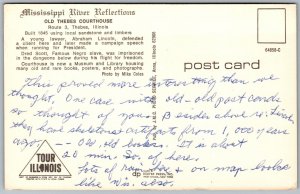 Mississippi River Reflections
OLD THEBES COURTHOUSE
Route 3, Thebes, Illinois
Built 1845 using local sandstone and timbers
A young lawyer, Abraham Lincoln, defended
a client here and later made a campaign speech
when running for President.
Dred Scott, Famous Negro slave, was imprisoned
in the dungeons below the courthouse.
Courthouse now a Museum and Library boasts of
many old and rare books, posters, photographs.
Photo by Mike Coles
64898-C
post card
This proved more interesting than we
thought. One case with old-old post cards
so thought of you.
they have skeletons artifacts from 1,000 years
ago -- old, old books. It is about
20 min. So. of here.
lots of + on map looks
like Mo. also.
TOUR
ILLINOIS